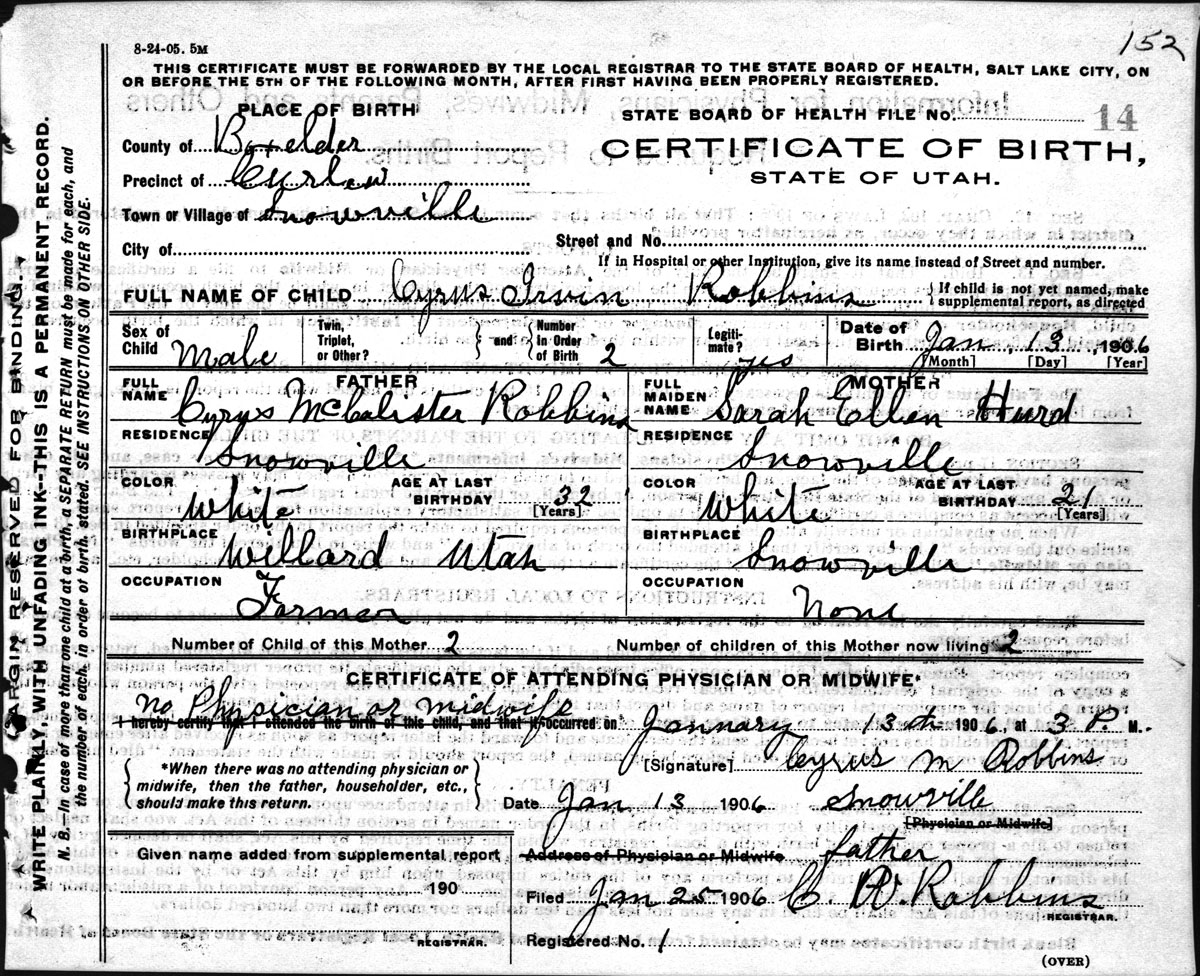 152
8-24-05. 5M
THIS CERTIFICATE MUST BE FORWARDED BY THE LOCAL REGISTRAR TO THE STATE BOARD OF HEALTH, SALT LAKE CITY, ON
OR BEFORE THE 5TH OF THE FOLLOWING MONTH, AFTER FIRST HAVING BEEN PROPERLY REGISTERED.
PLACE OF BIRTH
STATE BOARD OF HEALTH FILE No. 14
County of Boxelder
CERTIFICATE OF BIRTH,
Precinct of Curlew
STATE OF UTAH.
Town or Village of Snowville
City of
Street and No.
If in Hospital or other Institution, give its name instead of Street and number.
FULL NAME OF CHILD Cyrus Irvin Robbins { If child is not yet named, make
supplemental report, as directed
Sex of
Child Male
Twin,
Triplet,
or Other?
} and {
Number
in Order
of Birth 2
Legiti-
mate? yes
Date of
Birth Jan 13, 1906
[Month] [Day] [Year]
FATHER
FULL
NAME
Cyrus McCalister Robbins
MOTHER
FULL
MAIDEN
NAME
Sarah Ellen Hurd
RESIDENCE
Snowville
RESIDENCE
Snowville
COLOR
White
AGE AT LAST
BIRTHDAY 32
[Years]
COLOR
White
AGE AT LAST
BIRTHDAY 21
[Years]
BIRTHPLACE
Willard Utah
BIRTHPLACE
Snowville
OCCUPATION
Farmer
OCCUPATION
None
Number of Child of this Mother 2
Number of children of this Mother now living 2
CERTIFICATE OF ATTENDING PHYSICIAN OR MIDWIFE*
No Physician or midwife
I hereby certify that I attended the birth of this child, and that it occurred on January 13th 1906, at 3 P. M.
*When there was no attending physician or
midwife, then the father, householder, etc.,
should make this return.
[Signature] Cyrus M Robbins
Date Jan 13 1906 Snowville
[Physician or Midwife]
Given name added from supplemental report
190
REGISTRAR.
Address of Physician or Midwife father
Filed Jan 25 1906 C. W. Robbins
REGISTRAR.
Registered No. 1
(OVER)
MARGIN RESERVED FOR BINDING.
WRITE PLAINLY, WITH UNFADING INK--THIS IS A PERMANENT RECORD.
N. B.—In case of more than one child at a birth, a SEPARATE RETURN must be made for each, and
the number of each, in order of birth, stated. SEE INSTRUCTIONS ON OTHER SIDE.